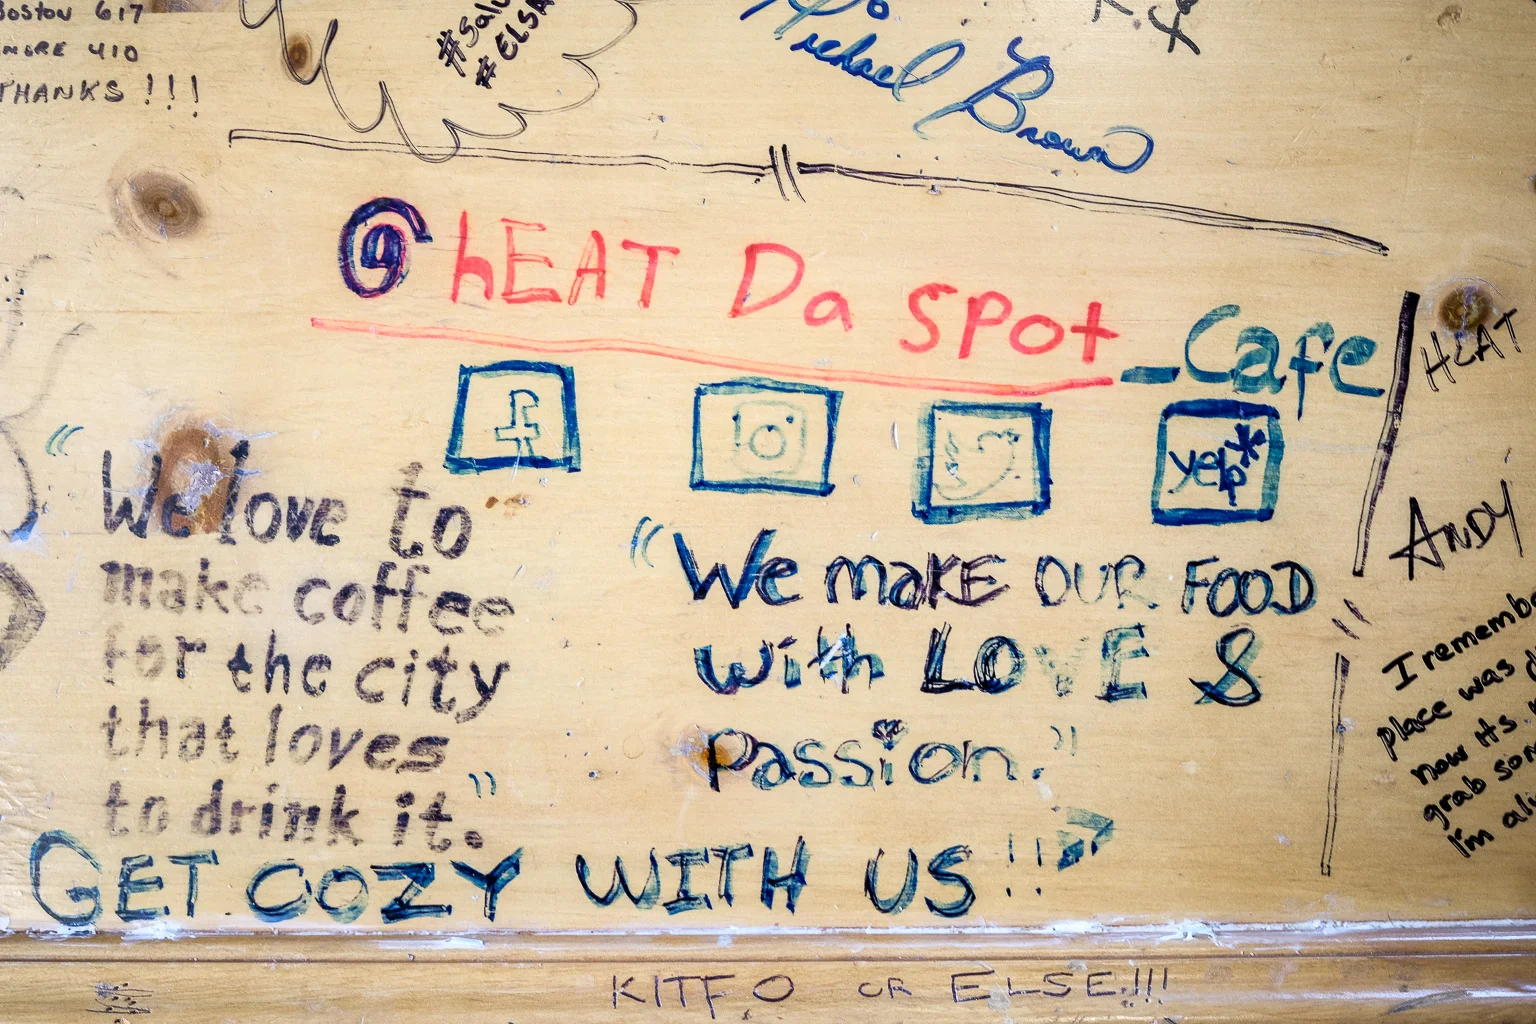 Boston 617
MORE 410
THANKS!!!
#ELSA
Michael Brown
@hEAT Da SPot_Cafe
f
yelp
"We love to
make coffee
for the city
that loves
to drink it."
"We maKE OUR FOOD
with LOVE &
Passion."
GET COZY WITH US!!
HEAT
ANDY
I rememb
place was
now its
grab som
I'm ali
KITFO OR ELSE!!!